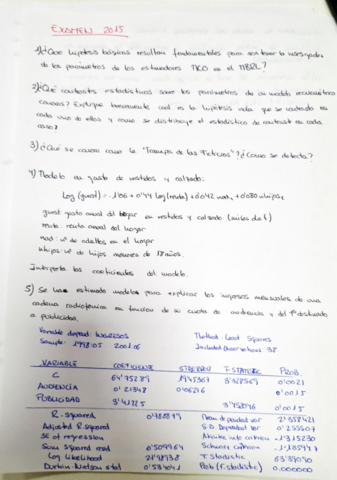 EXAMEN 2015
1) ¿Qué hipótesis básicas resultan fundamentales para sostener la insesgadez
de los parámetros de los estimadores MCO en el MBRL?
2) ¿Qué contrastes estadísticos sobre los parámetros de un modelo econométrico
conoces? Explique brevemente cual es la hipótesis nula que se contrasta en
cada uno de ellos y como se distribuye el estadístico de contraste en cada
caso?
3) ¿Qué se conoce como la "Trampa de las Ficticias"? ¿Cómo se detecta?
4) Modelo en gasto de vestidos y calzado:
Log (gvest) = -1'106 + 0'44 log (renta) + 0'042 nad + 0'080 nhijos
gvest: gasto anual del hogar en vestidos y calzado (miles de €)
renta: renta anual del hogar
nad: nº de adultos en el hogar
nhijos: nº de hijos menores de 18 años.
Interpreta los coeficientes del modelo.
5) Se han estimado modelos para explicar los ingresos mensuales de una
cadena radiofónica en función de su cuota de audiencia y del destinado
a publicidad.
Variable depend: INGRESOS Method: Least Squares
Sample: 1998:05 2001:06 Included observations: 38
VARIABLE COEFICIENTE STD ERROR T-STATISTIC PROB.
C 0'0021
AUDIENCIA 0'21348 0'06216
PUBLICIDAD 0'0015
R-squared Mean depend var
Adjusted R-squared S.D. Dependent var
SE of regression Akaike info criterion
Sum squared resid 0'509964 Schwarz criterion
Log likelihood T-statistic
Durbin-Watson stat Prob (F-statistic) 0.000000